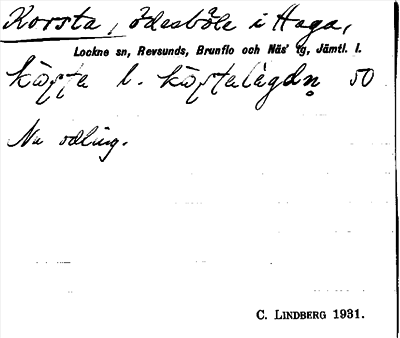 Korsta, ödesböle i Haga,
Lockne sn, Revsunds, Brunflo och Näs' tg, Jämtl. l.
l. 50
Nu odling.
C. LINDBERG 1931.